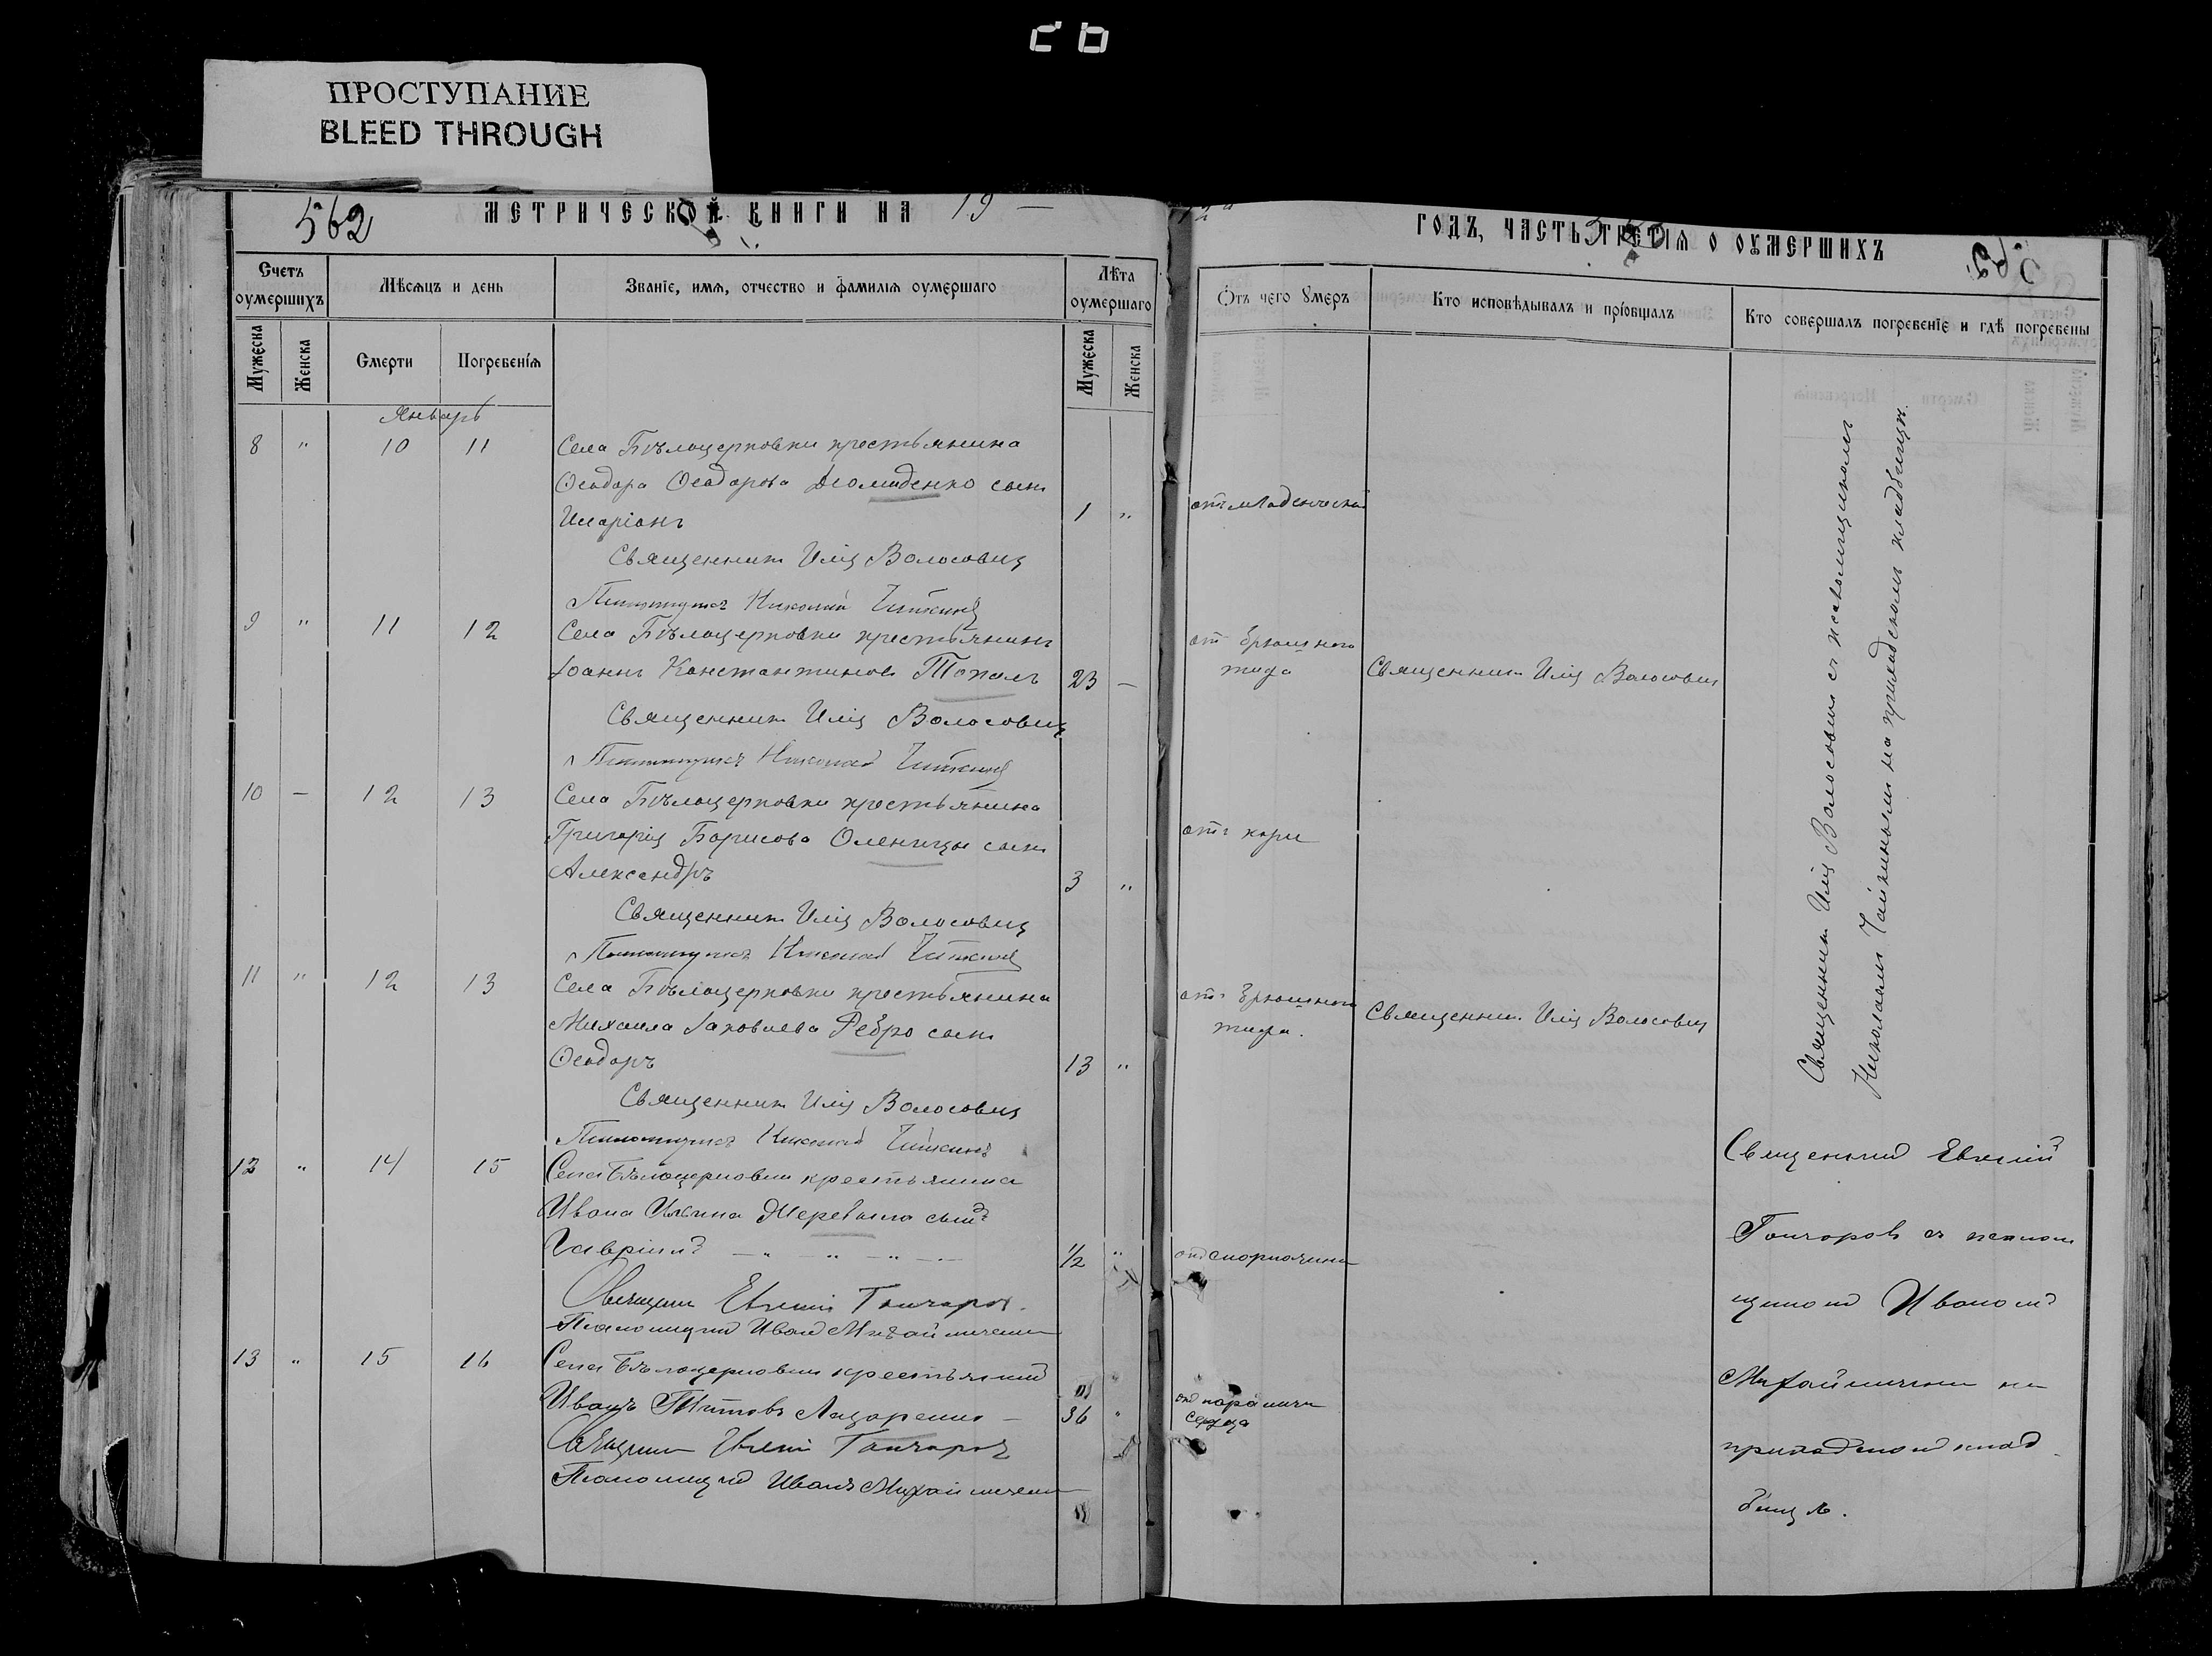 ПРОСТУПАНИЕ
BLEED THROUGH
562
МЕТРИЧЕСКОЙ КНИГИ НА 19
12 ГОДЪ, ЧАСТЬ ТРЕТІЯ О ОУМЕРШИХЪ
Счетъ оумершихъ
Мѣсяцъ и день
Званіе, имя, отчество и фамилія оумершаго
Лѣта оумершаго
Отъ чего умеръ
Кто исповѣдывалъ и пріобщалъ
Кто совершалъ погребеніе и гдѣ погребены
Мужеска
Женска
Смерти
Погребенія
Мужеска
Женска
Январь
8 " 10 11 Села Бѣлоцерковки крестьянина
Ѳеодора Ѳеодорова сынъ
Иларіонъ 1 " отъ младенческой
Священникъ Илія Волосовичъ
Николай
9 " 11 12 Села Бѣлоцерковки крестьянинъ
Іоаннъ Константиновъ Топалъ 23 — от брюшного
тифа
Священникъ Илія Волосовичъ
Священникъ Илія Волосовичъ
Николай
10 — 12 13 Села Бѣлоцерковки крестьянина
Григорія Борисова Оленицы сынъ
Александръ 3 " отъ кори
Священникъ Илія Волосовичъ
Николай
11 " 12 13 Села Бѣлоцерковки крестьянина
Михаила Іаковлева Ребро сынъ
Ѳеодоръ 13 " отъ брюшного
тифа.
Священник Илія Волосовичъ
Священникъ Илія Волосовичъ
Николай
12 " 14 15 Села Бѣлоцерковки крестьянина
Ивана сынъ
Гавріилъ 1/2 " отъ скарлатины
Священник Евгеній Гончаров.
Псаломщикъ Иван
13 " 15 16 Села Бѣлоцерковки крестьянинъ
Иванъ Титовъ Лазаренко — 36 " отъ паралича
сердца
Священник Евгеній Гончаров
Псаломщикъ Иванъ
Священникъ Илія Волосовичъ съ псаломщикомъ
Николаемъ на приходскомъ кладбищѣ.
Священникъ Евгеній
Гончаровъ съ псалом
щикомъ Иваномъ
на
приходскомъ клад
бищѣ.